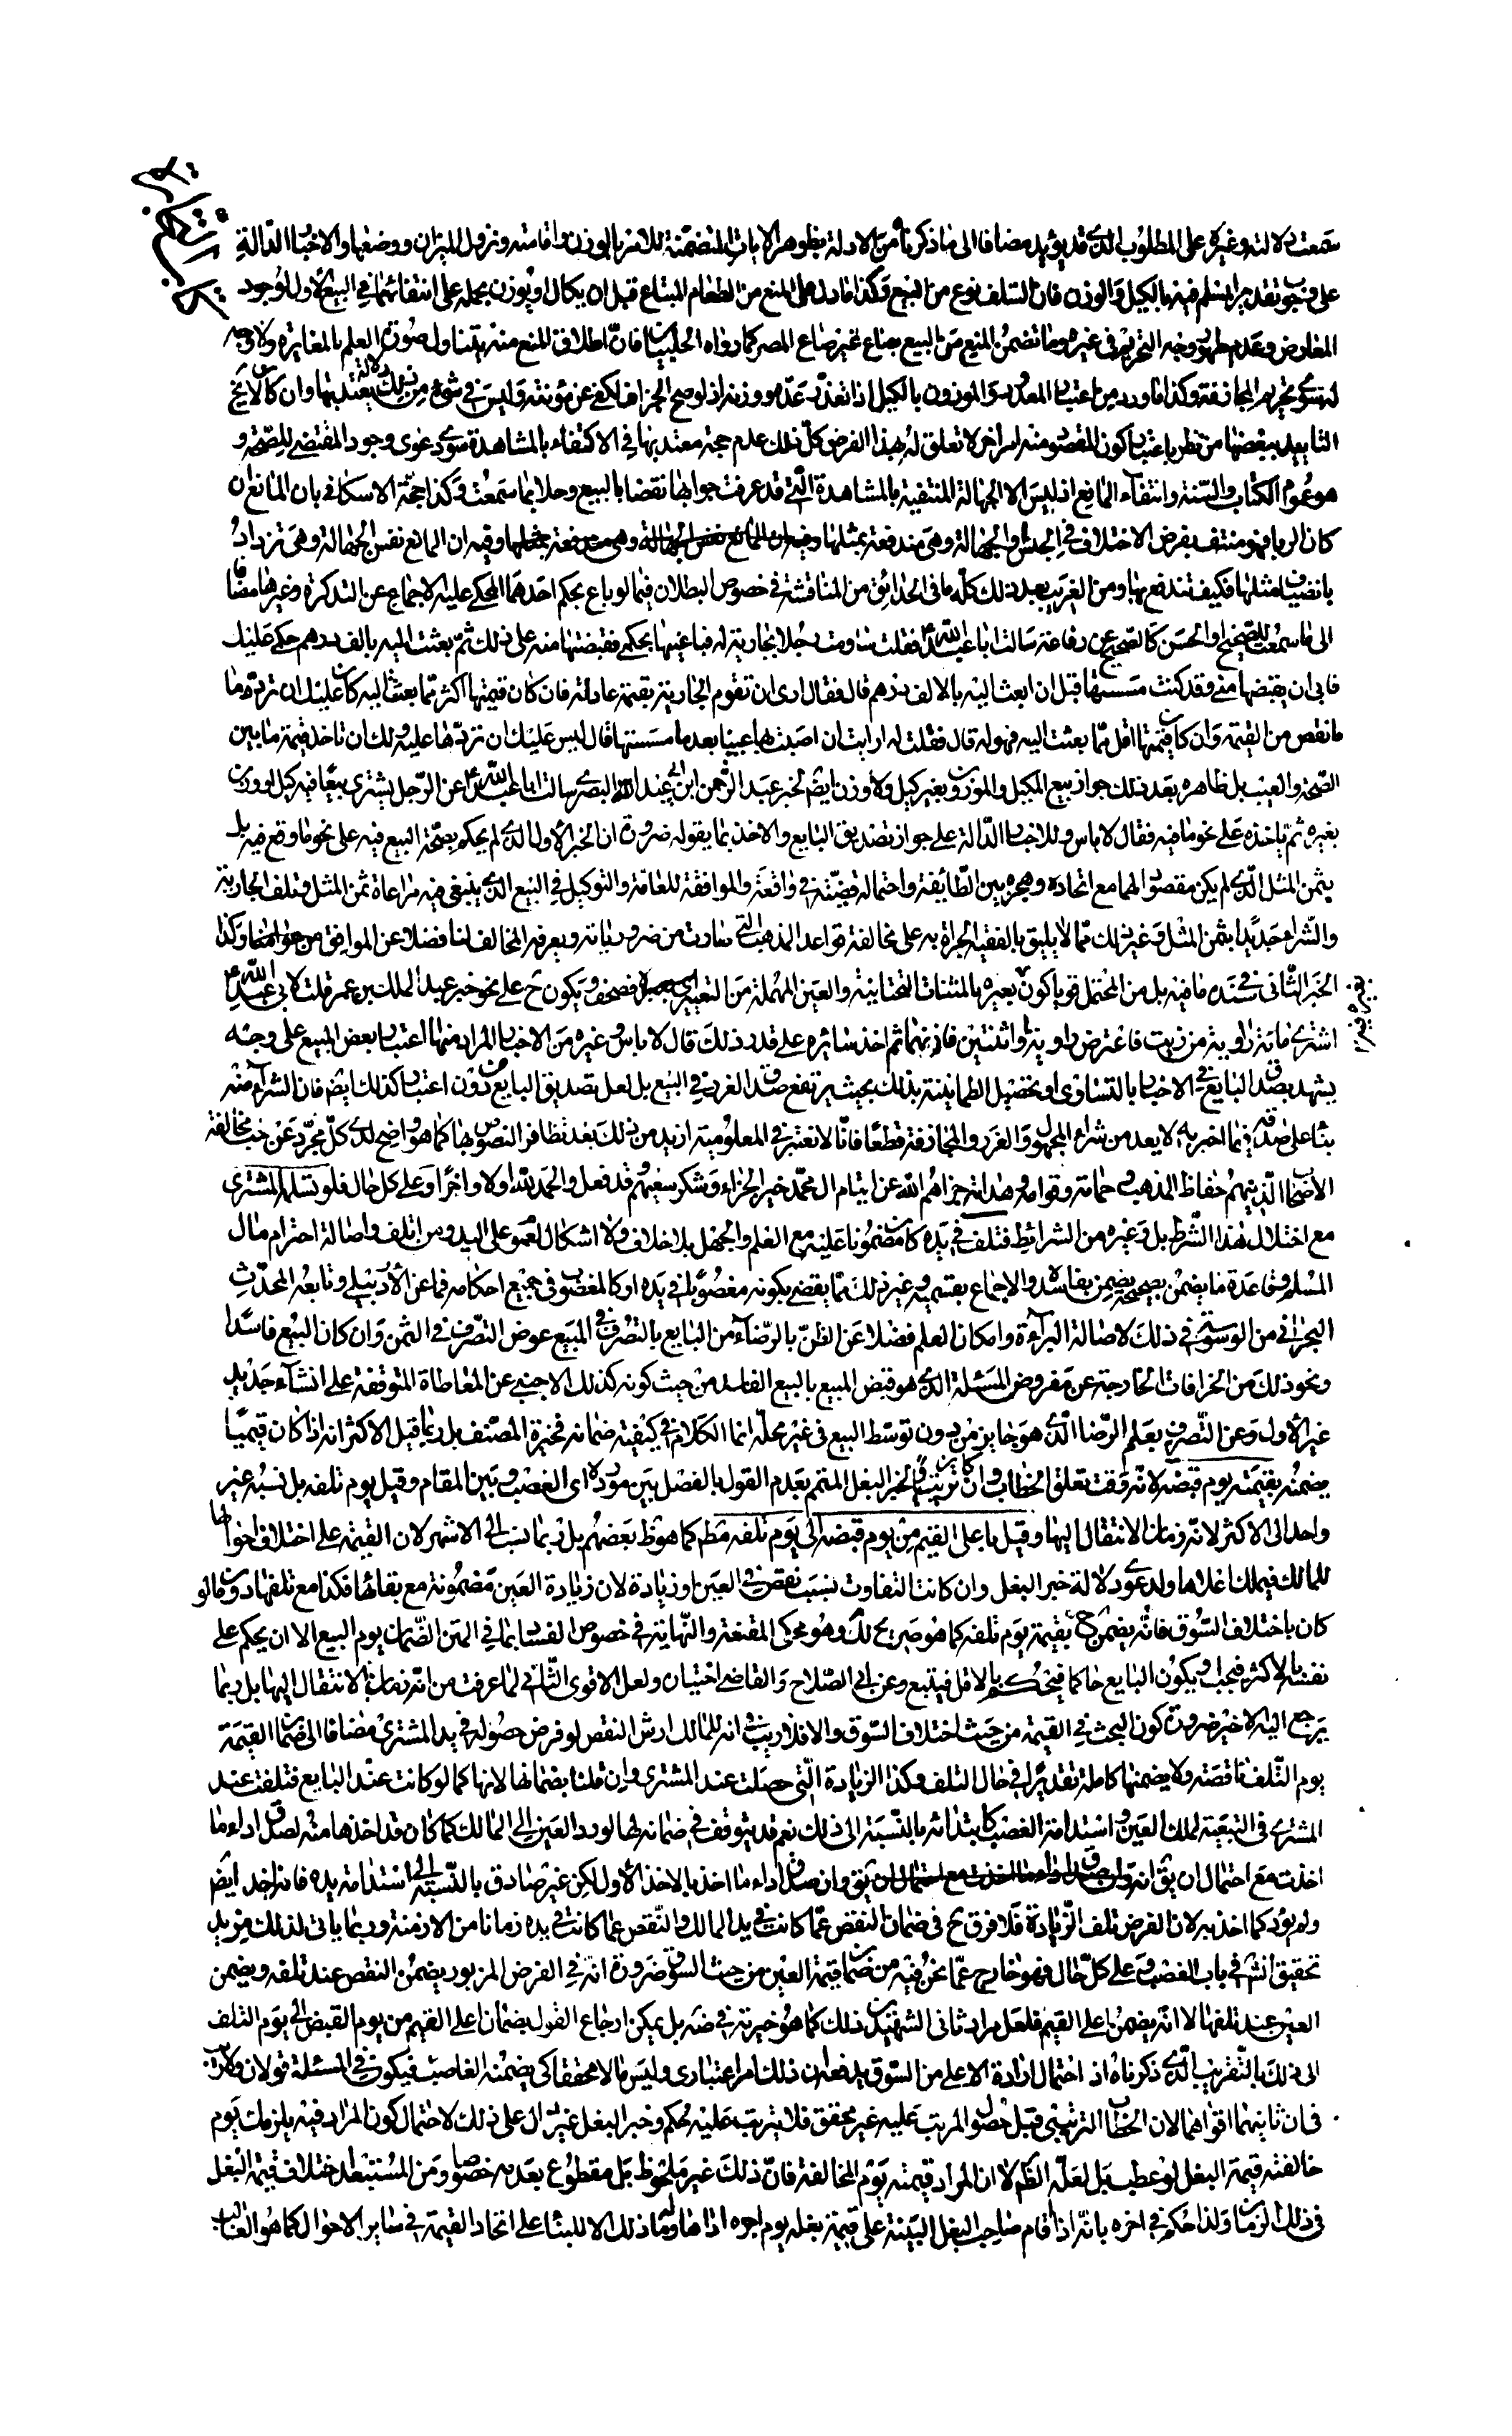 سمعت دلالته وغيره على المطلوب الذي قد يؤيد مضافا الى ما ذكرناه من الادلة بظواهر الايات المتضمنة للامر بالوزن واقامته ونزول الميزان ووضعها والاخبار الدالة
على وجوب تقدير المسلم فيه بالكيل والوزن فان السلف نوع من البيع وكذا ما دل على المنع من الطعام المبتاع قبل ان يكال او يوزن بحمله على انتفائهما في البيع الاول لوجود
المعارض وعدم ظهور وجه التحريم في غيره وما تضمن المنع من البيع بصاع غير صاع المصر كما رواه الحلبيان فان اطلاق المنع منه يتناول صورة العلم بالمغايرة ولا وجه
له سوى تحريم المجازفة وكذا ما ورد من اعتبار المعدود والموزون بالكيل اذا تعذر عده ووزنه اذ لو صح الجزاف لكفى عن مؤنته وليس في شيء من ذلك دلالة يعتد بها وان كان لا يخ
التاييد ببعضها من نظر باعتبار كون المقصود منه امرا اخر لا تعلق له بهذا الفرض كل ذلك عدم حجة معتد بها في الاكتفاء بالمشاهدة سوى دعوى وجود المقتضي للصحة و
هو عموم الكتاب والسنة وانتفاء المانع اذ ليس الا الجهالة المنتفية بالمشاهدة التي قد عرفت جوابها نقضا بالبيع وحلا بما سمعت وكذا حجة الاسكافي بان المانع ان
كان الربا فهو منتف بفرض الاختلاف في الجنس والجهالة وهي مندفعة بمثلها وفيه ان المانع نفس الجهالة وهي تزداد
بانضياف مثلها فكيف تندفع بها ومن الغريب بعد ذلك كله ما في الحدائق من المناقشة في خصوص البطلان فيما لو باع بحكم احدهما المحكي عليه الاجماع عن التذكرة وغيرها مضافا
الى ما سمعت للصحيح او الحسن كالصحيح عن رفاعة سالت ابا عبد الله ع فقلت ساومت رجلا بجارية له فباعنيها بحكمي فقبضتها منه على ذلك ثم بعثت اليه بالف درهم حكمي عليك
فابى ان يقبضها مني وقد كنت مسستها قبل ان ابعث اليه بالالف درهم قال فقال ارى ان تقوم الجارية بقيمة عادلة فان كان قيمتها اكثر مما بعثت اليه كان عليك ان ترد ما
ما نقص من القيمة وان كان قيمتها اقل مما بعثت اليه فهو له قال فقلت له ارايت ان اصبت بها عيبا بعد ما مسستها قال ليس عليك ان تردها عليه ولك ان تاخذ قيمة ما بين
الصحة والعيب بل ظاهره بعد ذلك جواز بيع المكيل والموزون بغير كيل ولا وزن ايضم لخبر عبد الرحمن ابن ابي عبد الله البصري سالت ابا عبد الله ع عن الرجل يشتري بيعا فيه كيل او وزن
بغيره ثم ياخذه على نحو ما فيه فقال لا باس وللاخبار الدالة على جواز تصديق البايع والاخذ بما يقوله ضرورة ان الخبر الاول الذي لم يحكم بصحة البيع فيه على نحو ما وقع فيه بل
بثمن المثل الذي لم يكن مقصودا لهما مع اتحاده وهجره بين الطائفة واحتماله قضية في واقعة والموافقة للعامة والتوكيل في البيع الذي ينبغي فيه مراعاة ثمن المثل وتلف الجارية
والشراء جديدا بثمن المثل وغير ذلك مما لا يليق بالفقيه الجراة به على مخالفة قواعد المذهب التي صارت من ضرورياته ويعرفه المخالف لنا فضلا عن الموافق وكذا
الخبر الثاني في سنده ما فيه بل من المحتمل قويا كون بعيره بالمثنات التحتانية والعين المهملة من التعيير فصحف ويكون ح على نحو خبر عبد الملك بن عمر قلت لابي عبد الله ع
اشتري مائة راوية من زيت فاعترض راوية واثنتين فازنهما ثم اخذ سائره على قدر ذلك قال لا باس وغيره من الاخبار المراد منها اعتبار بعض المبيع على وجه
يشهد بصدق البايع في الاخبار بالتساوي او تحصيل الطمانينة بذلك بحيث يرتفع صدق الغرر في البيع بل لعل تصديق البايع من دون اعتبار كذلك ايضم فان الشراء منه
بناء على صدقه فيما اخبر به لا يعد من شراء المجهول والغرر والمجازفة قطعا فانا لا نعتبر في المعلومية ازيد من ذلك بعد تظافر النصوص بها كما هو واضح لدى كل مجرد عن حب مخالفة
الاصحاب الذين هم حفاظ المذهب وحماته وقوامه وهداته جزاهم الله عن ايتام ال محمد خير الجزاء وشكر سعيهم وقد فعل والحمد لله اولا واخرا وعلى كل حال فلو تسلم المشتري
مع اختلال هذا الشرط بل وغيره من الشرائط فتلف في يده كان مضمونا عليه مع العلم والجهل بلا خلاف ولا اشكال لعموم على اليد ومن اتلف واصالة احترام مال
المسلم وقاعدة ما يضمن بصحيحه يضمن بفاسده والاجماع بقسميه وغير ذلك مما يقضي بكونه مغصوبا في يده او كالمغصوب في جميع احكامه فما عن الاردبيلي وتابعه المحدث
البحراني من الوسوسة في ذلك لاصالة البراءة وامكان العلم فضلا عن الظن بالرضاء من البايع بالتصرف في المبيع عوض التصرف في الثمن وان كان البيع فاسدا
ونحو ذلك من الخرافات الخارجة عن مفروض المسئلة الذي هو قبض المبيع بالبيع الفاسد من حيث كونه كذلك الاجنبي عن المعاطاة المتوقفة على انشاء جديد
غير الاول وعن التصرف بعلم الرضا الذي هو جايز من دون توسط البيع في غير محله انما الكلام في كيفية ضمانه فخيرة المصنف بل ربما قيل الاكثر انه اذا كان قيميا
يضمنه بقيمته يوم قبضه لانه وقت تعلق الخطاب وان كان ترتيبيا لخبر البغل المتمم بعدم القول بالفصل بين مورده اي الغصب وبين المقام وقيل يوم تلفه بل نسبه غير
واحد الى الاكثر لانه زمان الانتقال اليها وقيل باعلى القيم من يوم قبضه الى يوم تلفه مطم كما هو ظ بعضهم بل ربما نسب الى الاشهر لان القيمة على اختلاف احوالها
للمالك فيملك اغلاها ولدعوى دلالة خبر البغل وان كانت التفاوت بسبب نقص في العين او زيادة لان زيادة العين مضمونة مع بقائها فكذا مع تلفها دون ما لو
كان باختلاف السوق فانه يضمن ح بقيمة يوم تلفه كما هو صريح لك وهو محكي المقنعة والنهاية في خصوص الفساد بما في المتن الضمان يوم البيع الا ان يحكم على
نفسه بالاكثر فيجاب ويكون البايع حاكما فيحكم بالاقل فيتبع وعن ابي الصلاح والقاضي اختياره ولعل الاقوى الثاني لما عرفت من انه زمان الانتقال اليها بل ربما
يرجع اليه الاخير ضرورة كون البحث في القيمة من حيث اختلاف السوق والا فلا ريب في انه للمالك ارش النقص لو فرض حصوله في يد المشتري مضافا الى ضمان القيمة
يوم التلف ناقصة ولا يضمنها كاملة تقديرا في حال التلف وكذا الزيادة التي حصلت عند المشتري وان قلنا بضمانها لانها كما لو كانت عند البايع فتلفت عند
المشتري في التبعية لملك العين واستدامة الغصب كابتدائه بالنسبة الى ذلك نعم قد يتوقف في ضمانه لها لو رد العين الى المالك كما كان قد اخذها منه لصدق اداء ما
اخذت مع احتمال ان يق انه وان صدق اداء ما اخذ بالاخذ الاول لكن غير صادق بالنسبة الى استدامة يده فانه اخذ ايضم
ولم يؤد كما اخذ به لان الفرض تلف الزيادة فلا فرق ح في ضمان النقص عما كانت في يد المالك والنقص عما كانت في يده زمانا من الازمنة وربما ياتي لذلك مزيد
تحقيق انشم في باب الغصب وعلى كل حال فهو خارج عما نحن فيه من ضمان قيمة العين من حيث السوق ضرورة انه في الفرض المزبور يضمن النقص عند تلفه ويضمن
العين عند تلفها لا انه يضمن اعلى القيم فلعل مراد ثاني الشهيدين ذلك كما هو خيرته في ضه بل يمكن ارجاع القول بضمان اعلى القيم من يوم القبض الى يوم التلف
الى ذلك بالتقريب الذي ذكرناه اذ احتمال ارادة الاعلى من السوق يدفعه ان ذلك امر اعتباري وليس مالا محققا كي يضمنه الغاصب فيكون في المسئلة قولان
فان ثانيهما اقواهما لان الخطاب الترتيبي قبل حصول المرتب عليه غير محقق فلا يترتب عليه حكم وخبر البغل غير دال على ذلك لاحتمال كون المراد فيه يلزمك يوم
خالفته قيمة البغل لو عطب بل لعله الظم لا ان المراد قيمته يوم المخالفة فان ذلك غير ملحوظ بل مقطوع بعدمه خصوصا ومن المستبعد اختلاف قيمة البغل
في ذلك الزمان ولذا حكم في اخره بانه اذا اقام صاحب البغل البينة على قيمة بغله يوم وما ذلك الا للبناء على اتحاد القيمة في سائر الاحوال كما هو الغالب